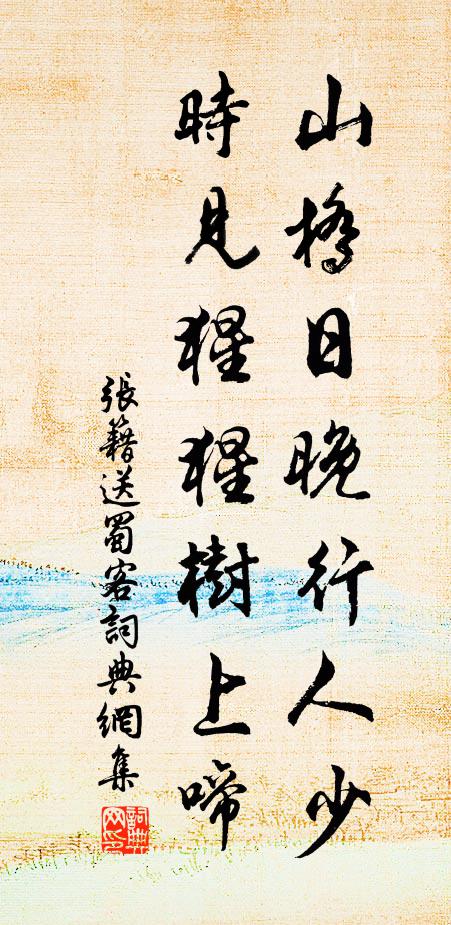 山橋日晚行人少
時見猩猩樹上啼
張籍送蜀客詞典網集
詞典網印